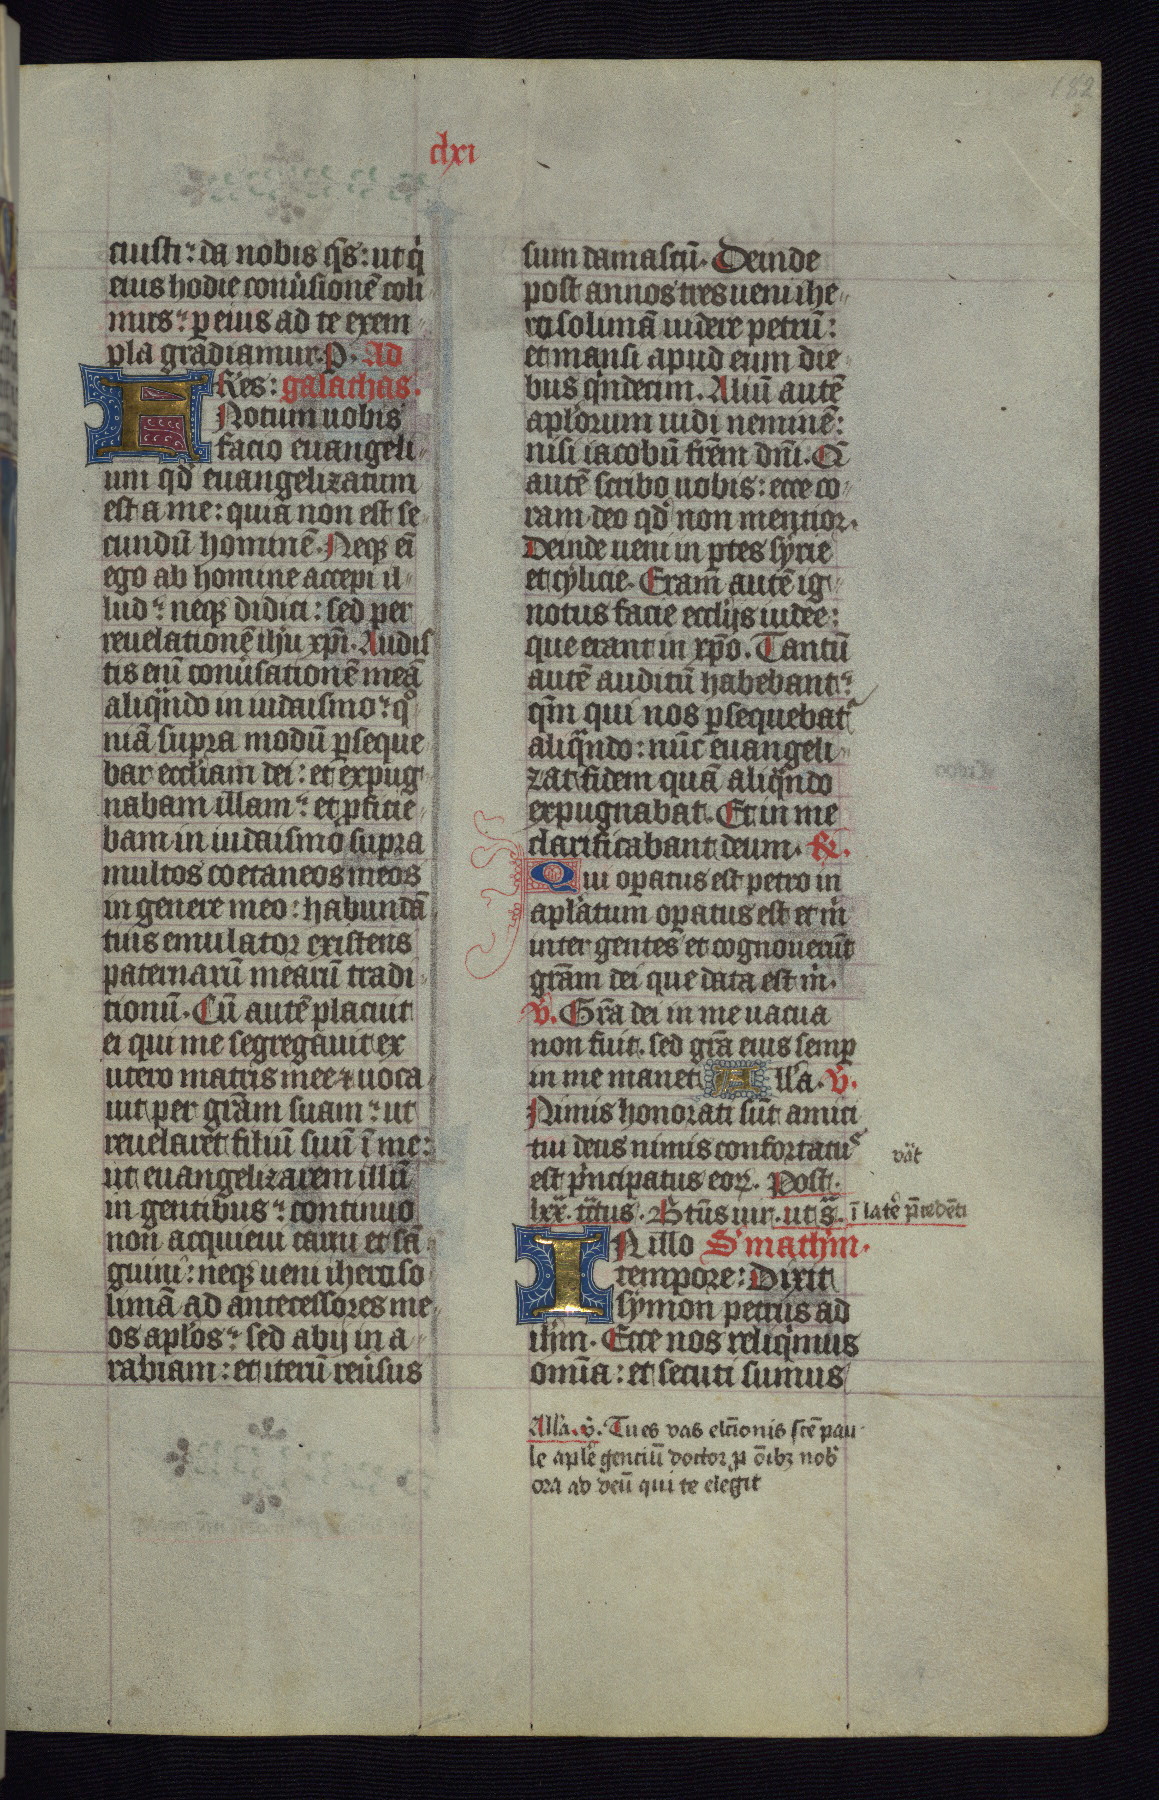 182
clxi
cuisti: da nobis q̄s: ut q̇
eius hodie conu̇sionē coli
mus: ꝑ eius ad te exem
pla gradiamur. P. Ad
FRes: galathas.
Notum uobis
facio euangeli
um qď euangelizatum
est a me: quia non est se
cundū hominē. Neqꝫ ei
ego ab homine accepi il
lud: neqꝫ didici: sed per
reuelationē ihu xp̄i. Audis
tis eni̅ conu̇sationē meā
aliqͣndo in iudaismo: qͦ
niā supra modū ꝑseque
bar eccl̄iam dei: et expug
nabam illam: et ꝓficie
bam in iudaismo supra
multos coetaneos meos
in genere meo: habundā
tius emulator existens
paternarū mearū tradi
tionū. Cū autē placuit
ei qui me segregauit ex
utero matris mee ⁊ uoca
uit per grām suam: ut
reuelaret filiū suū ī me:
ut euangelizarem illū
in gentibus: continuo
non acquieui carni et sā
guini: neqꝫ ueni iheroso
limā ad antecessores me
os aplos: sed abij in a
rabiam: et iterū reu̇sus
sum damascū. Deinde
post annos tres ueni ihe
rosolimā uidere petrū:
et mansi apud eum die
bus qͥndecim. Aliū autē
aplorum uidi neminē:
nisi iacobū frēm dn̄i. Q̄
autē scribo uobis: ecce co
ram deo qď non mentior.
Deinde ueni in ꝑtes syrie
et cylicie. Eram autē ig
notus facie eccl̄ijs iudee:
que erant in xp̄o. Tantū
autē auditū habebant:
qm̄ qui nos ꝑsequebat᷑
aliqͣndo: nūc euangeli
zat fidem quā aliqͣndo
expugnabat. Et in me
clarificabant deum. R̄.
Qui oꝑatus est petro in
aplatum oꝑatus est et m̊
inter gentes et cognouerūt
grām dei que data est m̊.
V̄. Grā dei in me uacua
non fuit. sed grā eius semꝑ
in me manet All̄a. V̄.
Nimis honorati sūt amici
tui deus nimis confortatꝰ
est pͥncipatus eoꝝ. Post.
lxx. tͣtus. B̄tūs uir. ut sͣ. ī latē p̄cedēti
vāt
IN illo S' math'm.
tempore: Dixit
symon petrus ad
ih̄m. Ecce nos reliqͥmus
omīa: et secuti sumus
All̄a. v̄. Tu es vas elc̄ionis scē pau
le aplē genciū doctor ꝓ oībꝫ nob̄
ora ad deū qui te elegit